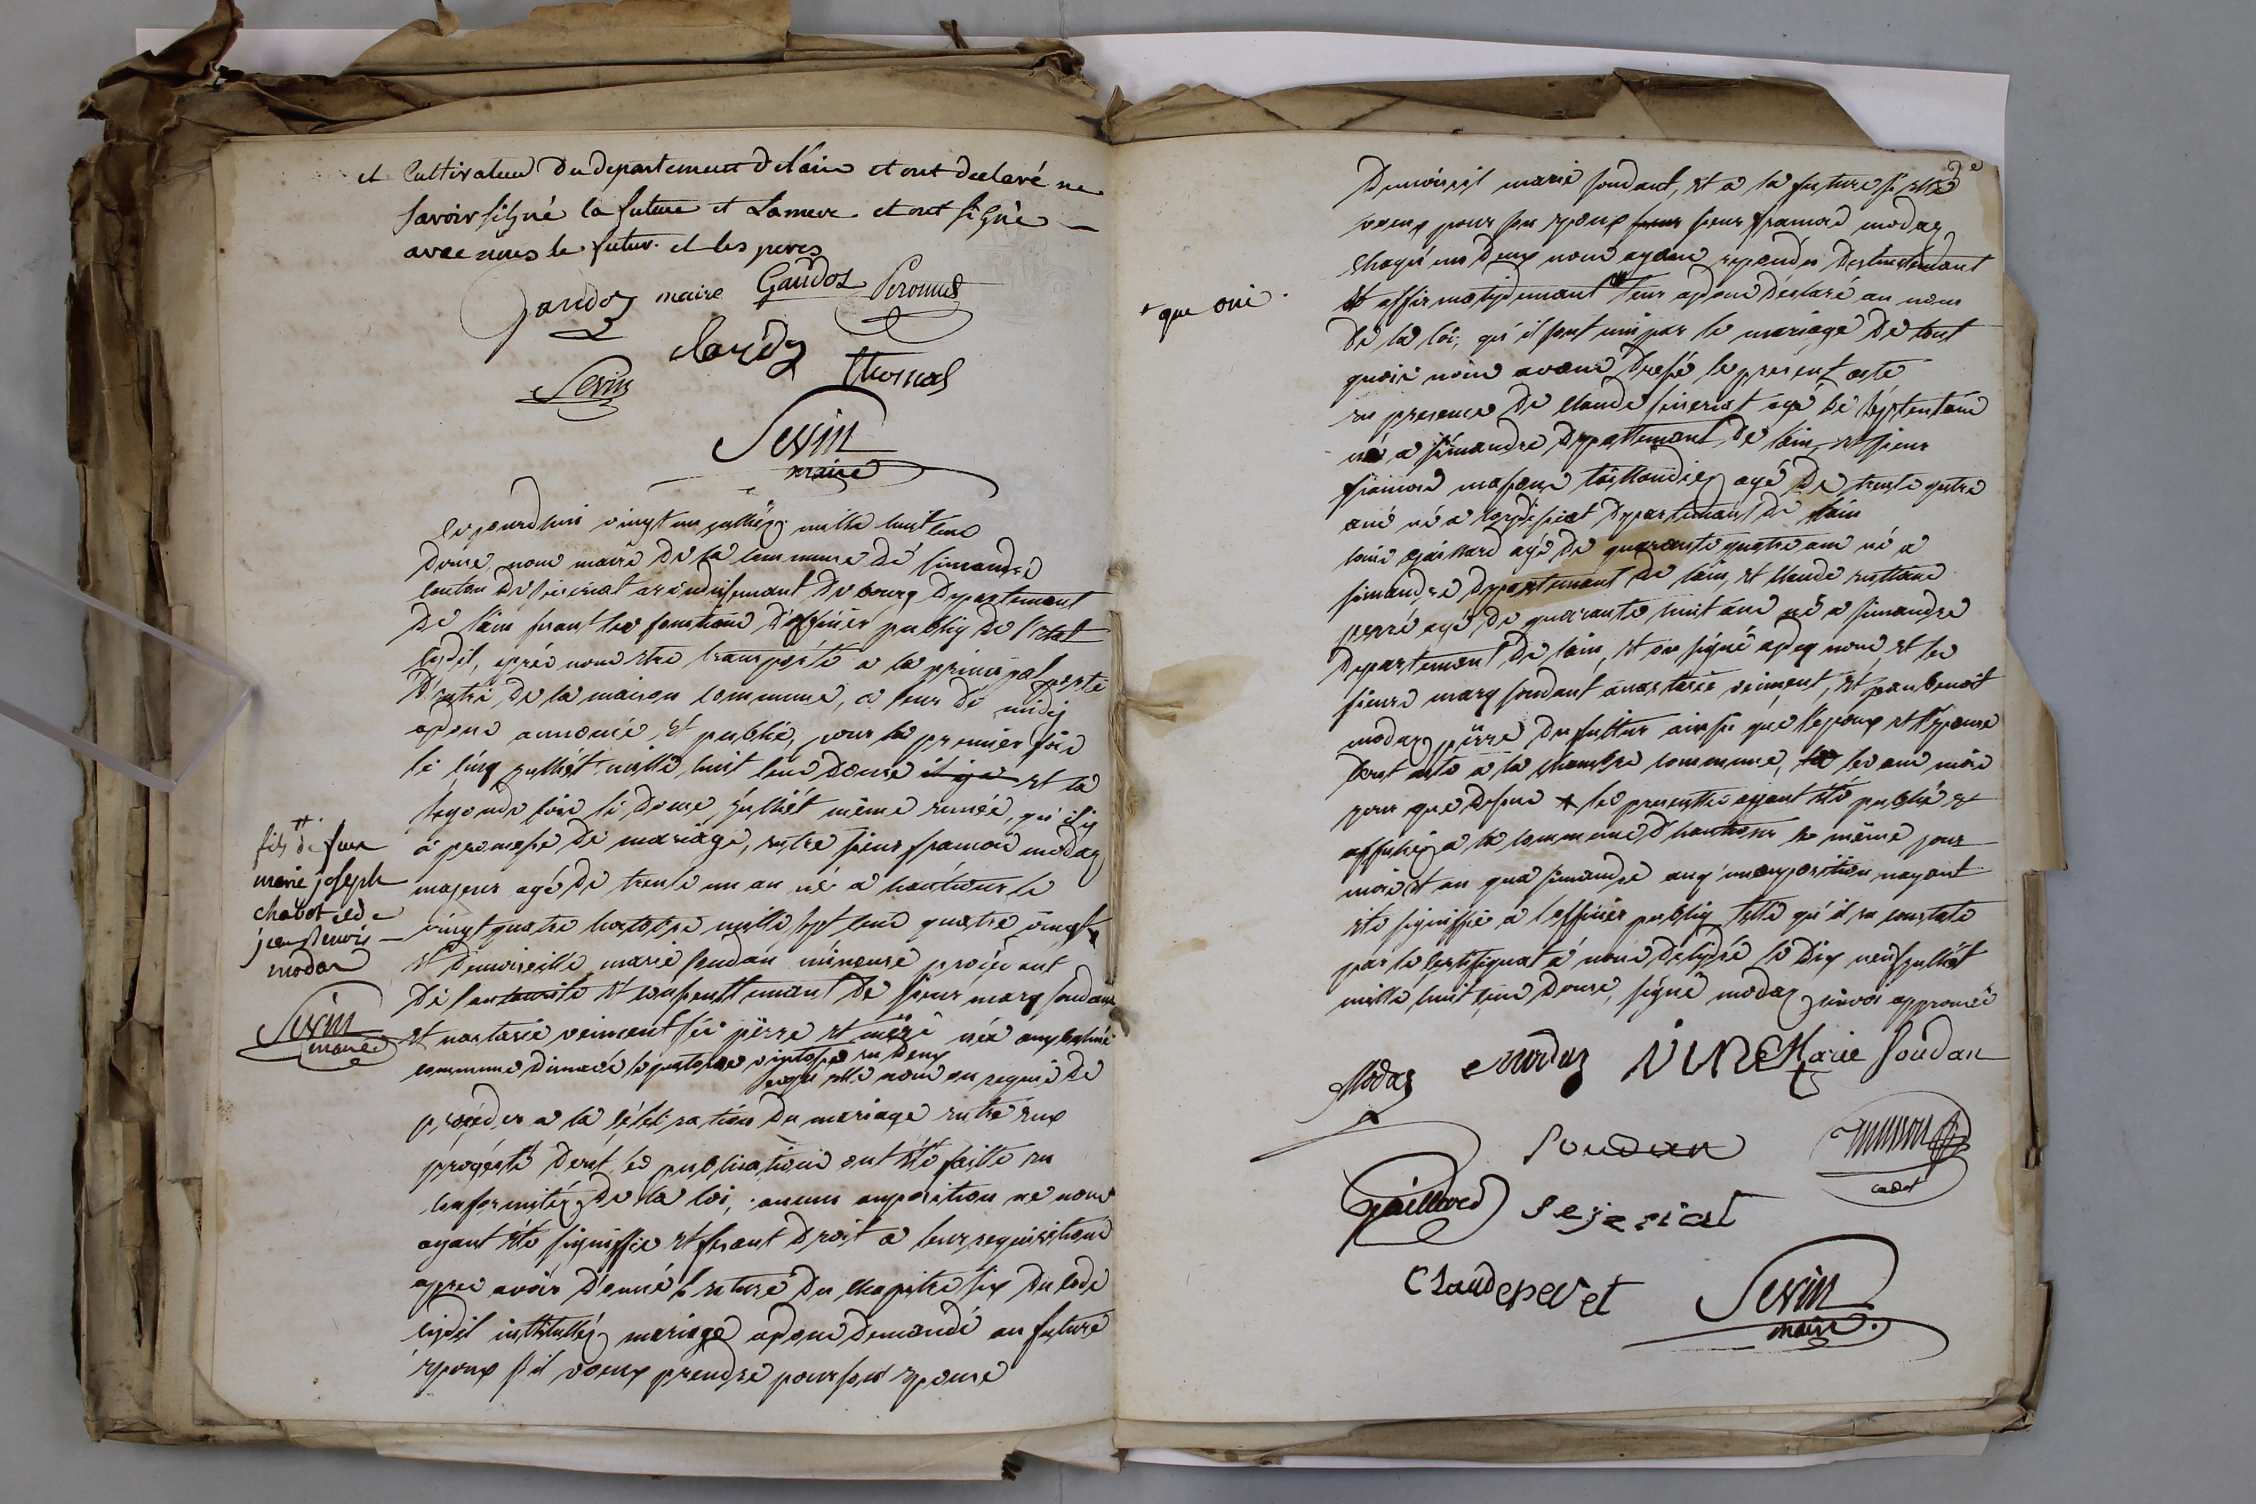 et Cultivateur du departement de l'ain et ont declaré ne
savoir signé la future et la mere et ont signé
avec nous le futur et les peres
Gaudoz maire Gaudoz Peronnet
Claridy
Sevin Thomas
Sevin
maire
Ce jourdhui vingt un julliet mille huit cent
douse nous maire de la commune de simandre
canton de seiseriat arondissemant de bourg departemant
de lain faisant les fonctions d'officier publiq de l'etat
civil, aprés nous etre transporté a la principal porte
d'entré de la maison commune, a leur de midi
avons annoncé et publié, pour la premier fois
le cinq julliet mille huit cens douse il y a et la
segonde fois le douse julliet même année, qu'il y
a promesse de mariage, entre sieur framois modaz
majeur agé de trente un an né a hautecour le
vingt quatre octobre mille sept cens quatre vingt
et demoiselle marie soudan mineure
de l'autaurité et consenttemant de sieur marq soudan
et nastasie veiment ses pere et mere née
commune
nous on requis de
procéder a la célébration du mariage entre eux
progeté dont les publications ont été faitte en
conformitéz de la loi, aucune auposition ne nous
ayant été signiffié et fesant droit a leur requisitions
apres avoir donné lecture du chapitre six du code
civil intitulléz mariage avons demandé au future
epoux s'il voeux prendre pour son epouse
++
fils de feue
marie joseph
chabot et de
jean benoit
modaz
Sevin
maire
de
Demoiseil marie soudant, et a la future si elle
voeux pour son epoux sieur framois modaz
chaqu'un deux nous ayant repondu
et affirmativemant leur avons déclaré au nom
de la loi, qu'il sont uni par le mariage de tout
quoi nous avons dressé le present acte
en presence de claude seiseriat agé de septentan
né a simandre departemant de lain, et sieur
framois taillandier agé de trente quatre
ané né a departemant de lain
louis gaillard agé de quarante quatre ans né a
simandre departemant de lain, et claude
perré agé de quarante huit ans né a simandre
departemant de lain, et on signé aveq nous et les
sieurs marq soudant anastasie veiment, et jean benoit
modaz perre du futtur ainsi que l'epoux et l'epouse
acte a la chambre commune, les an mois
jour que desus + les promesses ayant été publié et
affichéz a la commune d'hautecour le même jour
mois et an qu'a simandre auq'une auposition nayant
été signiffié a l'officier publiq telle qu'il en constate
par le certifiquat a nous délivré le dix neuf julliet
mille huit cens douse, signé modaz renvoi approuvé
+ que oui
Modaz Modaz Marie Soudan
Soudan
cadet
Gaillard Sejeriat
Claude peret Sevin
maire